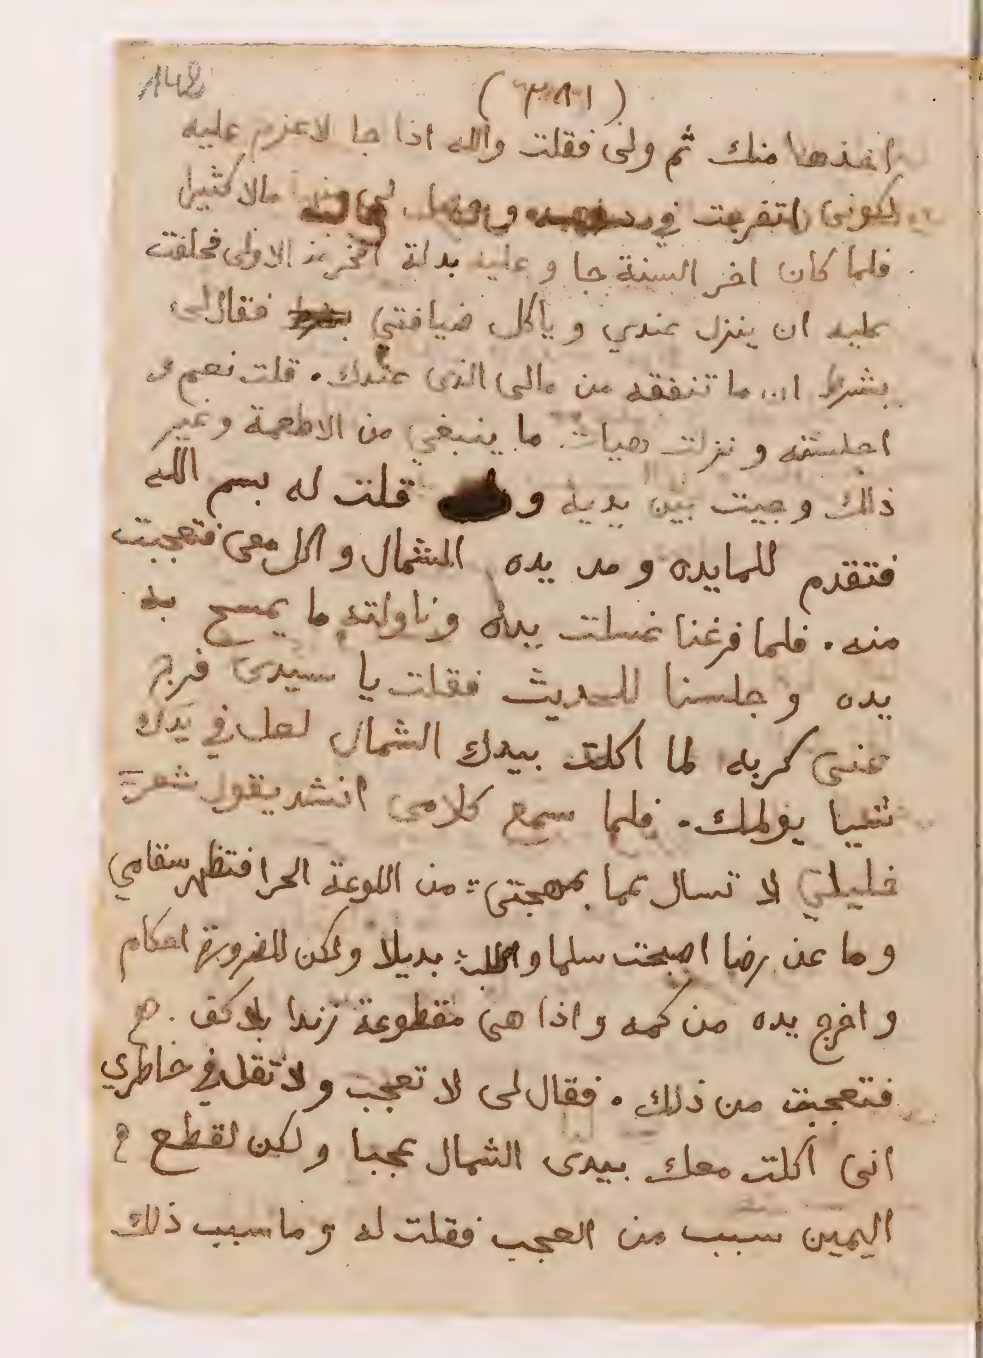 148
(٣٨١)
اخذها منك ثم ولى فقلت والله اذا جا لاعزم عليه
لكونى اتفرجت في دراهمه و لى منها مالا كثيرا
فلما كان اخر السنة جا و عليه بدلة افخر من الاولى فحلفت
عليه ان ينزل عندي و ياكل ضيافتي فقال لى
بشرط ان ما تنفقه من مالى الذى عندك . قلت نعم و
اجلسته و نزلت هيات ما ينبغي من الاطعمة و غير
ذلك و جيت بين يديه و قلت له بسم الله
فتقدم للمايده و مد يده الشمال و اكل معى فتعجبت
منه . فلما فرغنا غسلت يده و ناولته ما يمسح به
يده و جلسنا للحديث فقلت يا سيدى فرج
عنى كربه لما اكلت بيدك الشمال لعل في يدك
شيا يولمك . فلما سمع كلامى انشد يقول شعر
خليلي لا تسال عما بمهجتي : من اللوعة الحرا فتظهر سقامي
و ما عن رضا اصبحت سلما و اطلب بديلا ولكن للضرورة احكام
و اخرج يده من كمه و اذا هى مقطوعة زندا بلا كف .
فتعجبت من ذلك . فقال لى لا تعجب و لا تقل في خاطري
انى اكلت معك بيدى الشمال عجبا و لكن لقطع
اليمين سبب من العجب فقلت له و ما سبب ذلك